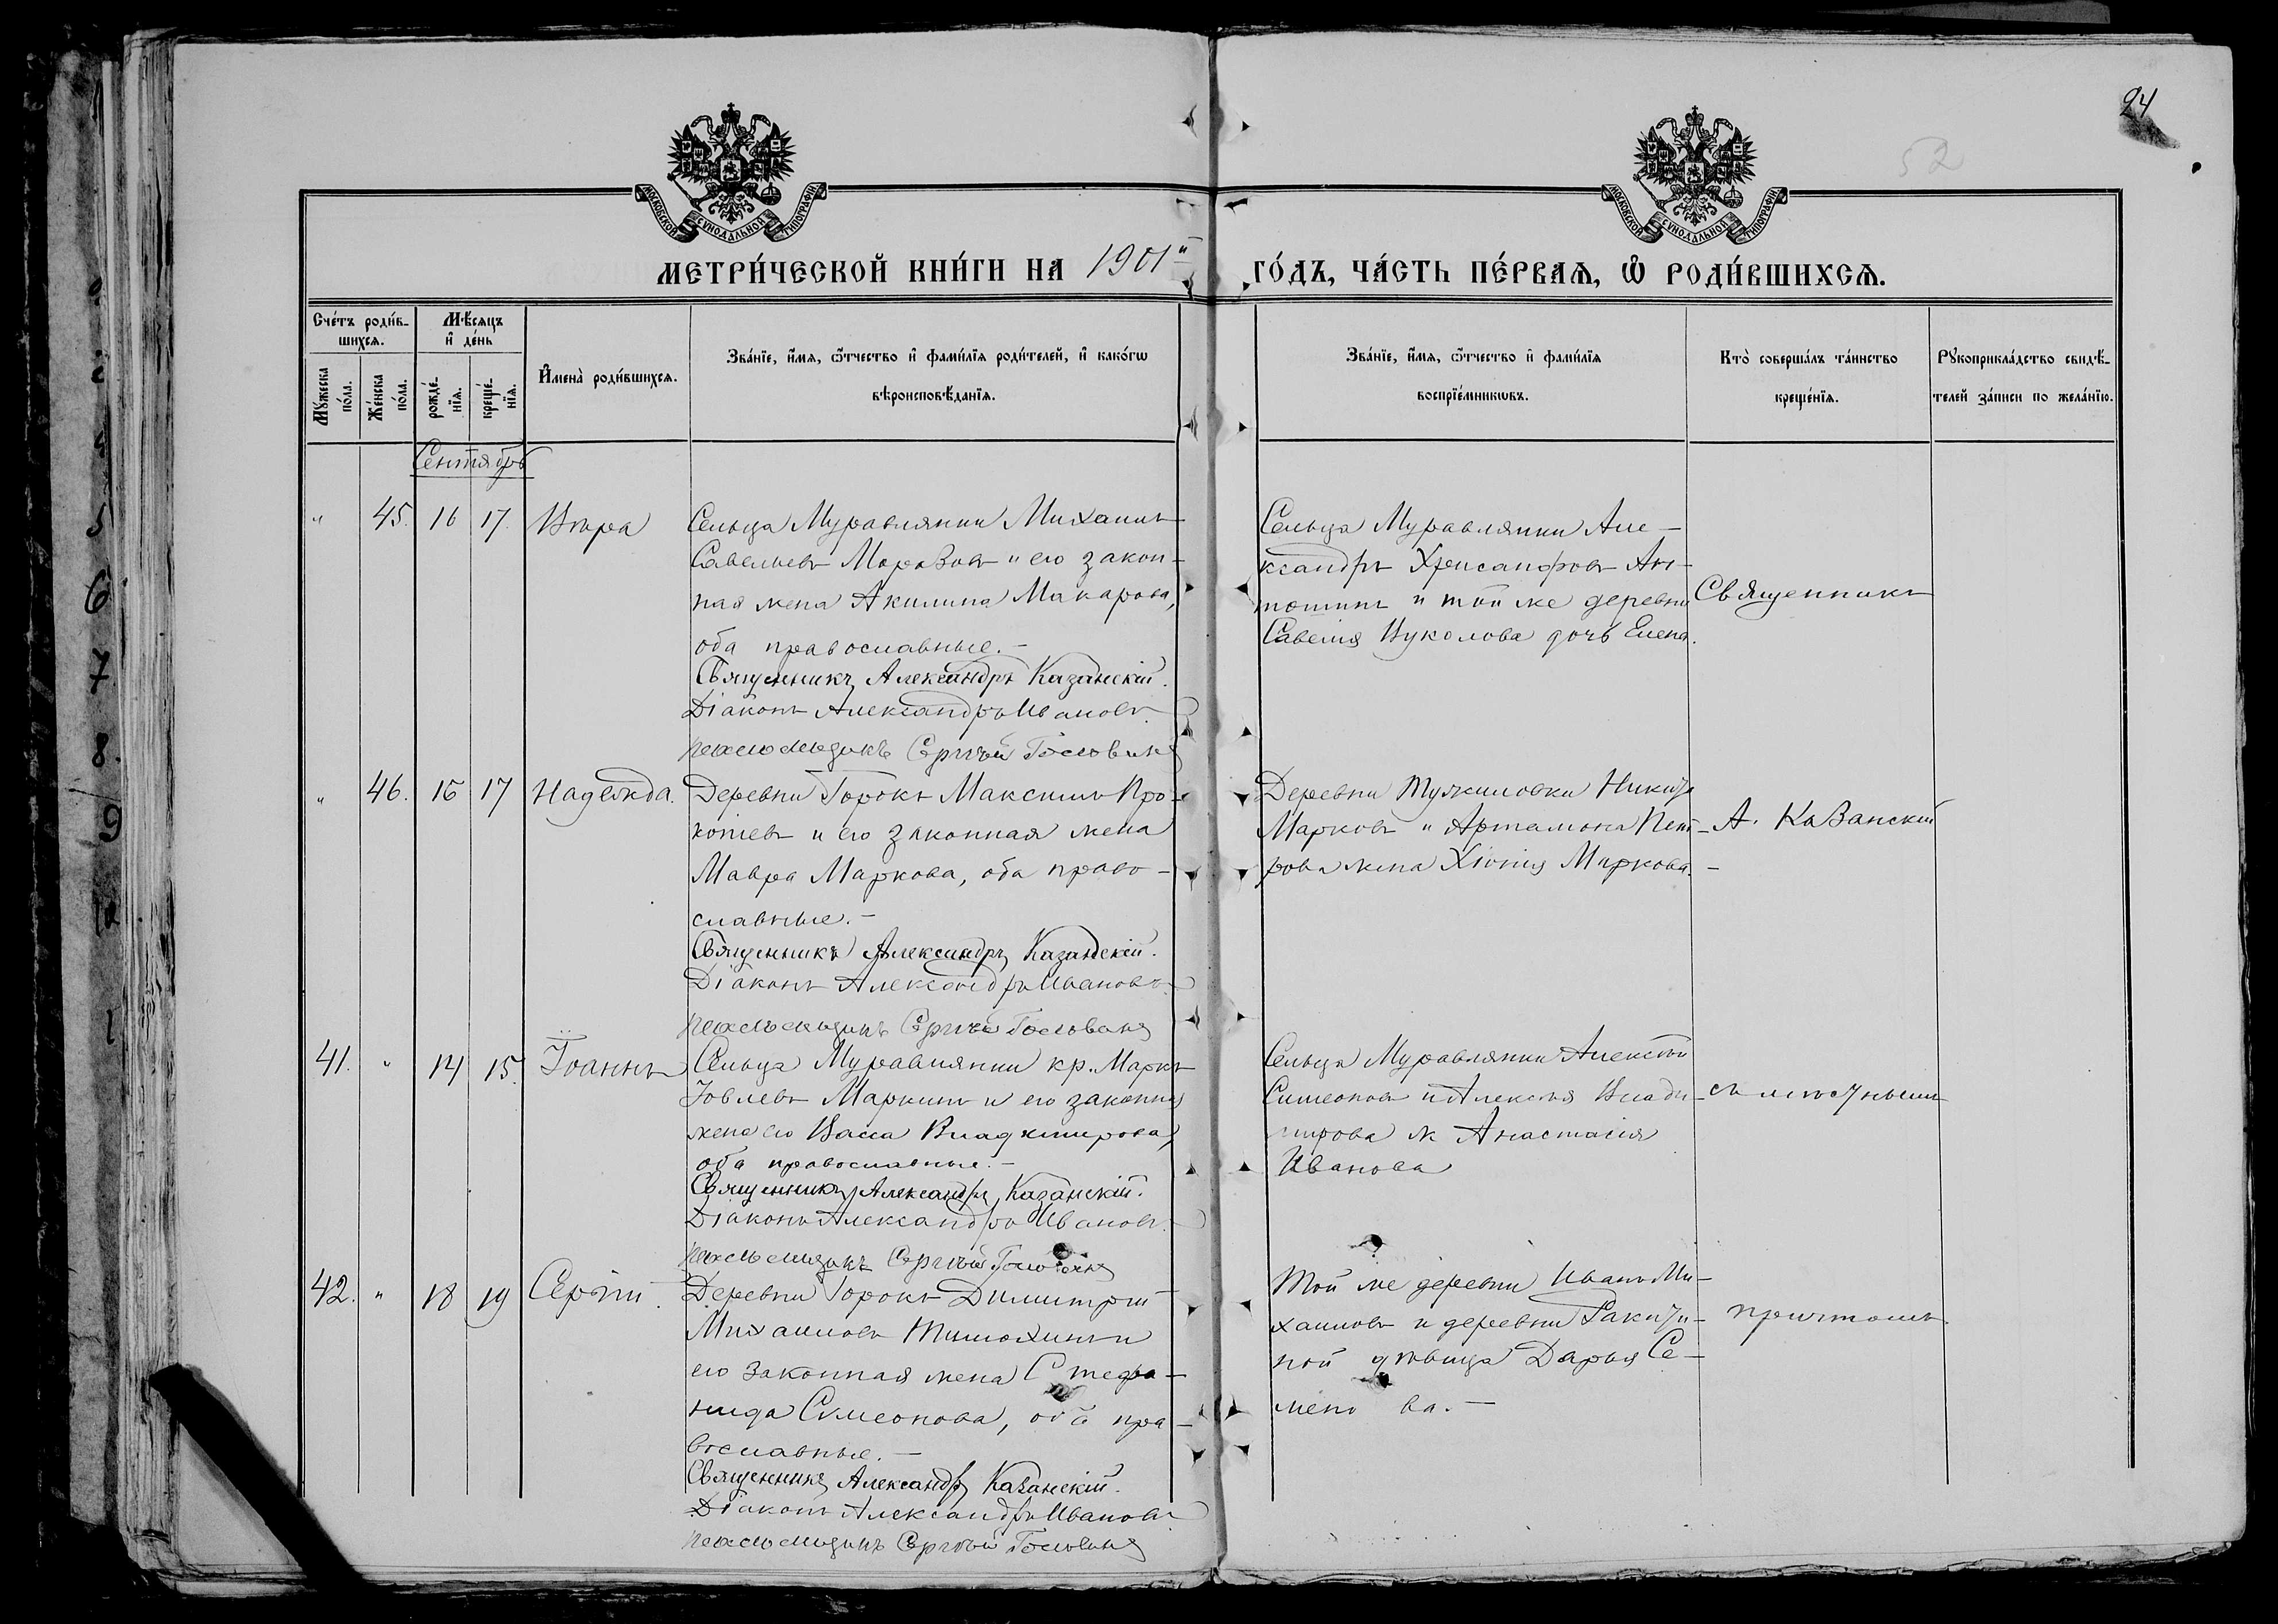 24
52
МОСКОВСКОЙ СѴНОДАЛЬНОЙ ТИПОГРАФІИ
МОСКОВСКОЙ СѴНОДАЛЬНОЙ ТИПОГРАФІИ
МЕТРИ́ЧЕСКОЙ КНИ́ГИ НА 1901й
ГО́ДЪ, ЧА́СТЬ ПЕ́РВАѦ, Ѡ҆ РОДИ́ВШИХСѦ.
Сче́тъ роди́в-
шихсѧ.
Мꙋ́жеска по́ла.
Же́нска по́ла.
Мѣ́сѧцъ
и҆ де́нь
рожде́-
нїѧ.
креще́-
нїѧ.
И҆мена̀ роди́вшихсѧ.
Зва́нїе, и҆́мѧ, ѻ҆́тчество и҆ фами́лїѧ роди́телей, и҆ како́гѡ
вѣроисповѣ́данїѧ.
Зва́нїе, и҆́мѧ, ѻ҆́тчество и҆ фами́лїѧ
воспрїе́мникѡвъ.
Кто̀ соверша́лъ та́инство
креще́нїѧ.
Рꙋкоприкла́дство свидѣ́-
телей за́писи по жела́нїю.
Сентябрь
" 45. 16 17. Вѣра
Сельца Муравлянки Михаилъ
Савельевъ Морозовъ и его закон-
ная жена Акилина Макарова,
оба православные.-
Священникъ Александръ Казанскій.
Діаконъ Александръ Ивановъ.
Псаломщикъ Сергѣй
Сельца Муравлянки Але-
ксандръ Хрисанфовъ Ан-
тошинъ и той же деревни
Савелія Вуколова дочь Елена.
Священникъ
" 46. 15 17 Надежда.
Деревни Горокъ Максимъ Про-
копіевъ и его законная жена
Мавра Маркова, оба право-
славные.-
Священникъ Александръ Казанскій.
Діаконъ Александръ Ивановъ
Псаломщикъ Сергѣй
Деревни Никита
Марковъ и Артамона Пет-
рова жена Хіонія Маркова.-
А. Казанскій
41. " 14 15. Іоаннъ
Сельца Муравлянки кр. Маркъ
Іовлевъ Маркинъ и его законная
жена его Васса Владимирова,
оба православные.-
Священникъ Александръ Казанскій.
Діаконъ Александръ Ивановъ.
Псаломщикъ Сергѣй
Сельца Муравлянки Алексѣй
Симеоновъ и Алексѣя Влади-
мирова ж Анастасія
Иванова
съ мѣстнымъ
42. " 18 19 Сергій.
Деревни Горокъ Димитрій
Михаиловъ Тимохинъ и
его законная жена Стефа-
нида Симеонова, оба пра-
вославные.-
Священникъ Александръ Казанскій.
Діаконъ Александръ Ивановъ
Псаломщикъ Сергѣй
Той же деревни Иванъ Ми-
хаиловъ и деревни Ракити-
ной дѣвица Дарья Се-
менова.-
причтомъ.